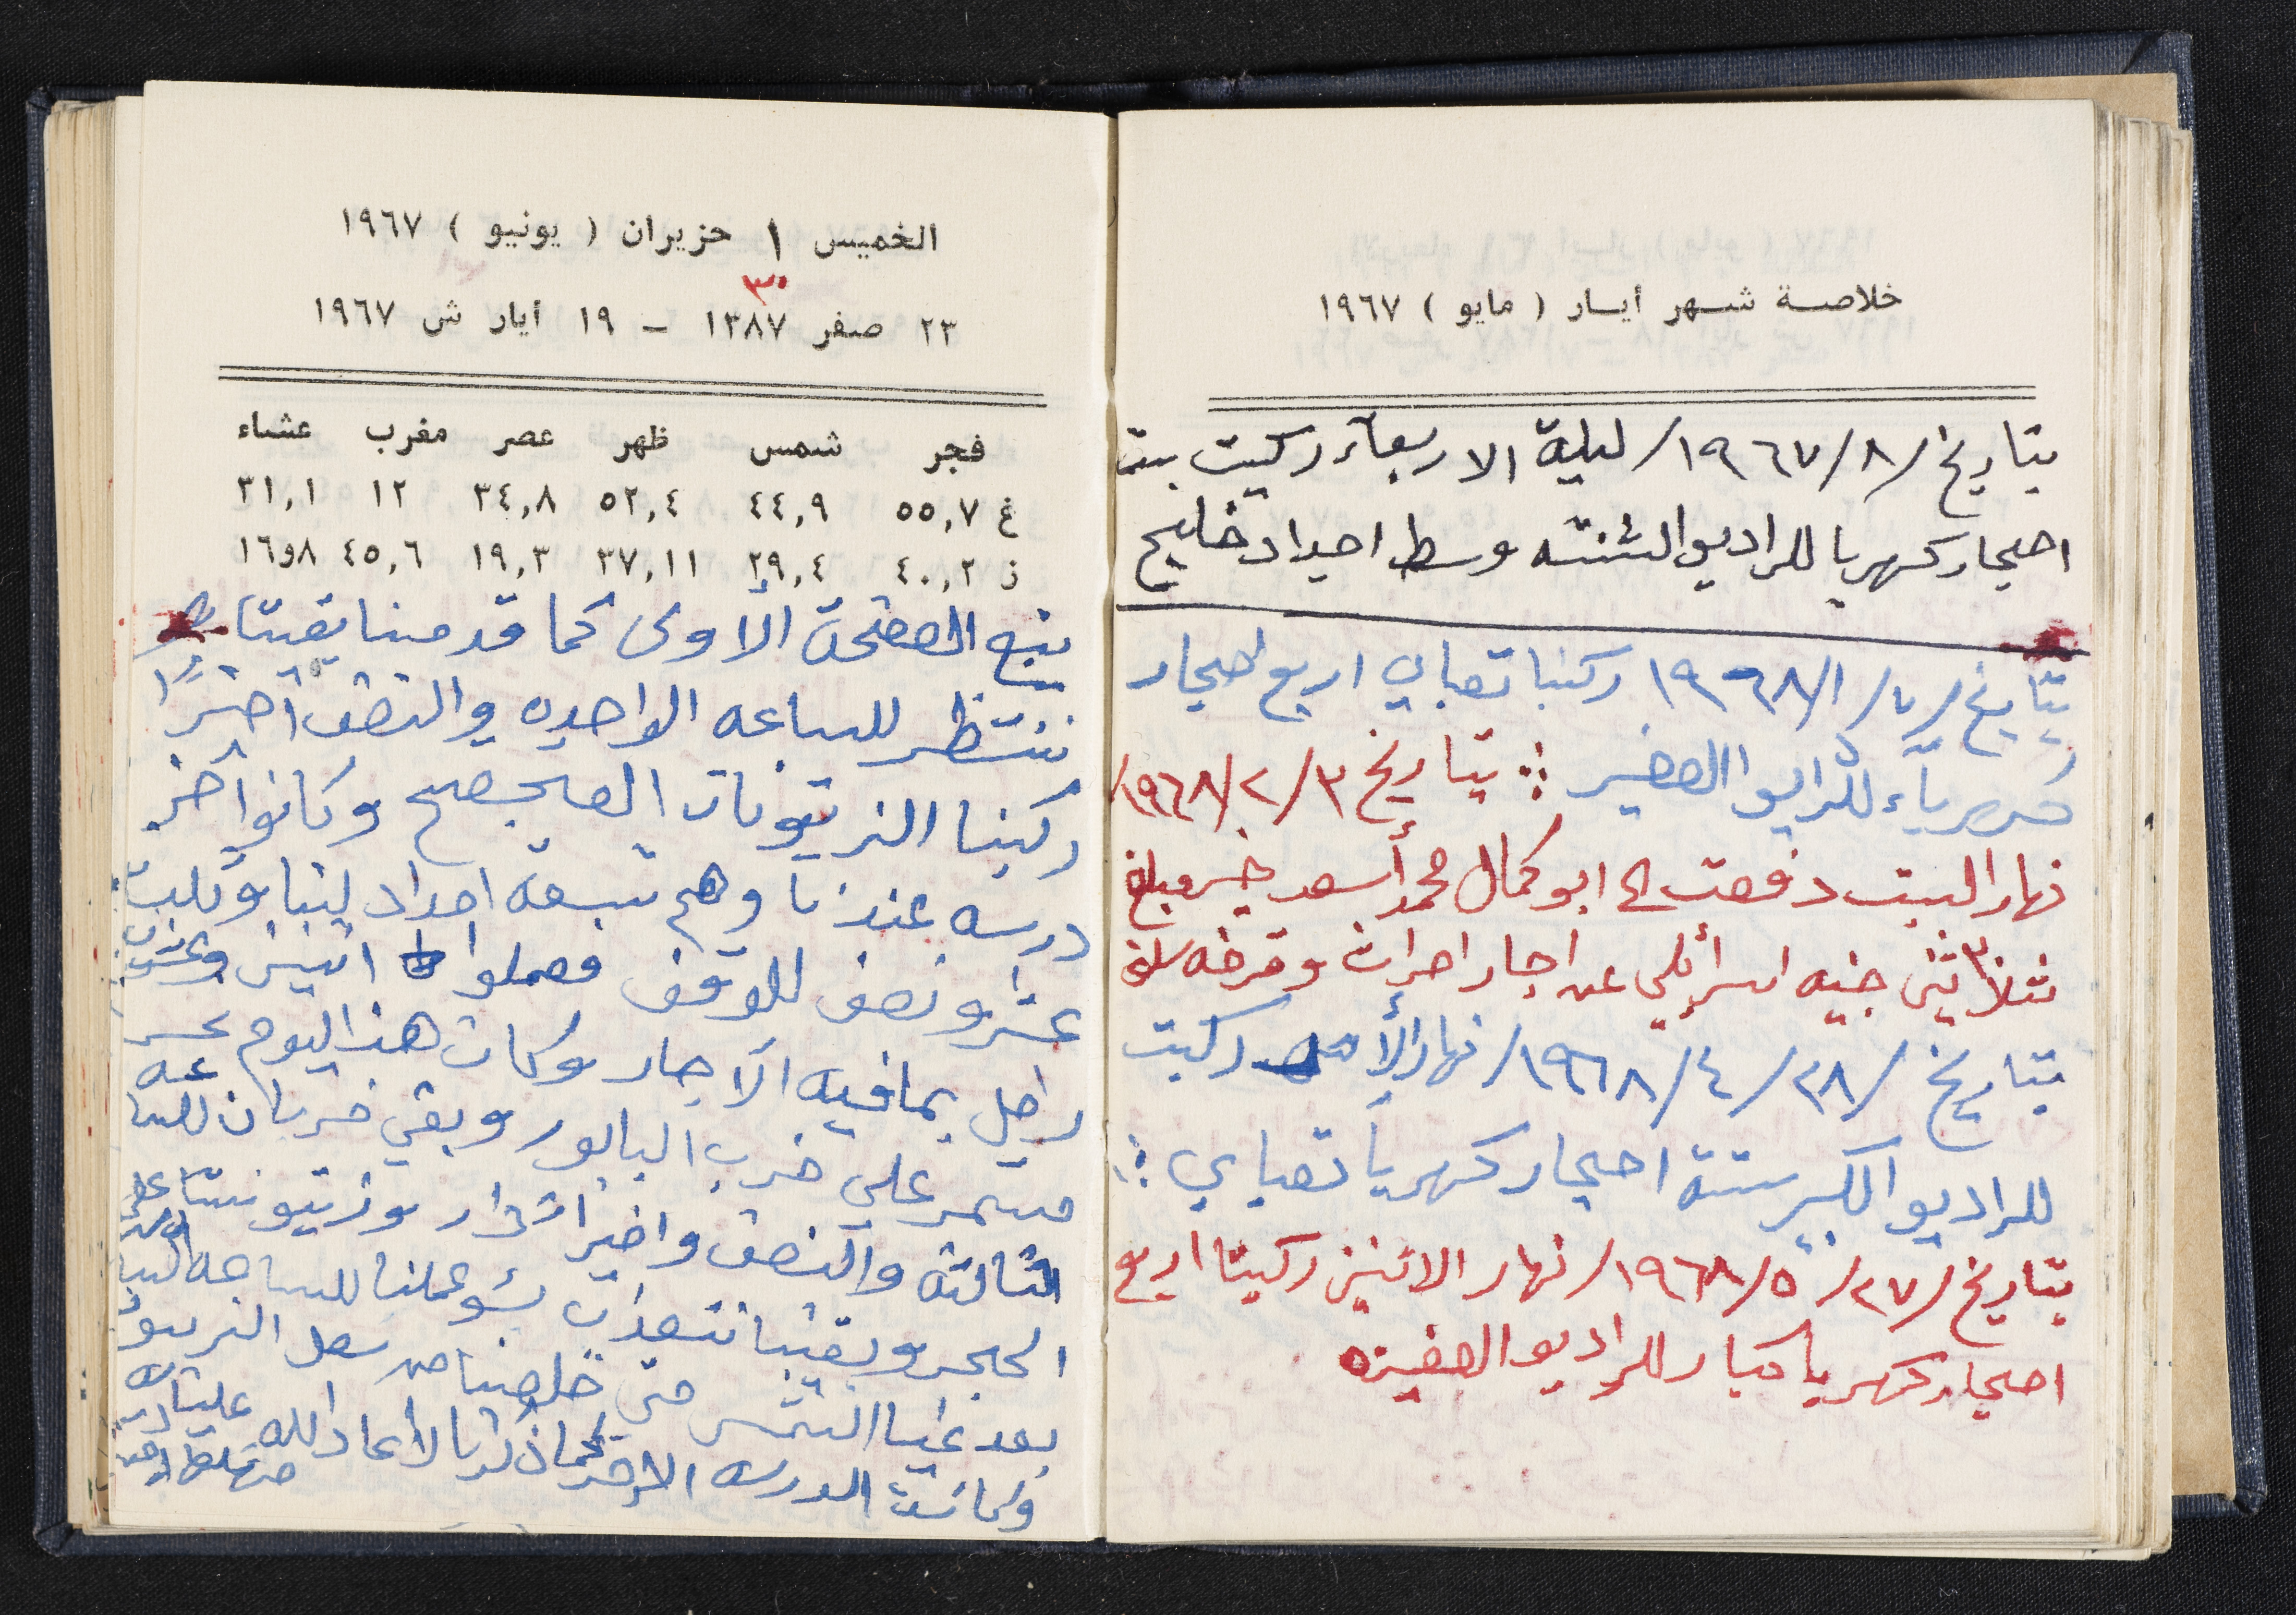 خلاصة شهر أيار ( مايو ) ١٩٦٧
بتاريخ /٨/ ١٩٦٧/ ليلة الاربعآء ركيت ستة
احجار كهربا للراديو الشنته وسط احداد خليج
بتاريخ /٧/ ١/ ١٩٦٨ ركبنا تعباي اربع احجار
كهربآء للرايو الصغير بتاريخ ٣/ ٢/ ١٩٦٨/
نهار السبت دفعت الى ابو كمال محمد أسعد خير مبلغ
ثلاثين جنيه اسرائلي عن اجار احراث وقرضه
بتاريخ /٢٨/ ٤/ ١٩٦٨/ نهار الأحد ركبت
للراديو الكبير ستة احجار كهربا تعباي
بتاريخ /٢٧/ ٥/ ١٩٦٨/ نهار الاثنين ركبنا اربع
احجار كهربا كبار للراديو الصغيره
الخميس ١ حزيران ( يونيو ) ١٩٦٧
٣٠
٢٣ صفر ١٣٨٧ – ١٩ أيار ش ١٩٦٧
فجر شمس ظهر عصر مغرب عشاء
غ ٥٥,٧ ٤٤,٩ ٥٢,٤ ٣٤,٨ ١٢ ٣١,١
ز ٤٠,٢ ٢٩,٤ ٣٧,١١ ١٩,٣ ٤٥,٦ ٨و١٦
يتبع الصفحة الأولى كما قدمنا بقينا
ننتظر للساعه الواحده والنصف اخيرًا
ركبنا الزيتونات الصحصح وكانوا آخر
درسه عندنا وهم سبعة امداد لينا وثلث
عشر ونصف للوقف فعملوا اثنين وعشرين
رطل بما فيه الاجار وكان هذا اليوم
مستمر على خرب البابور وبقي خربان للساعه
الثالثه والنصف واخيرا دار وزيتونتنا على
الحجر وبقينا نتعذب وعملنا للساعه
بعد غياب الشمس حتى خلصنا من الزيتون
وكانت الدرسه الاخر لا اعاد الله علينا